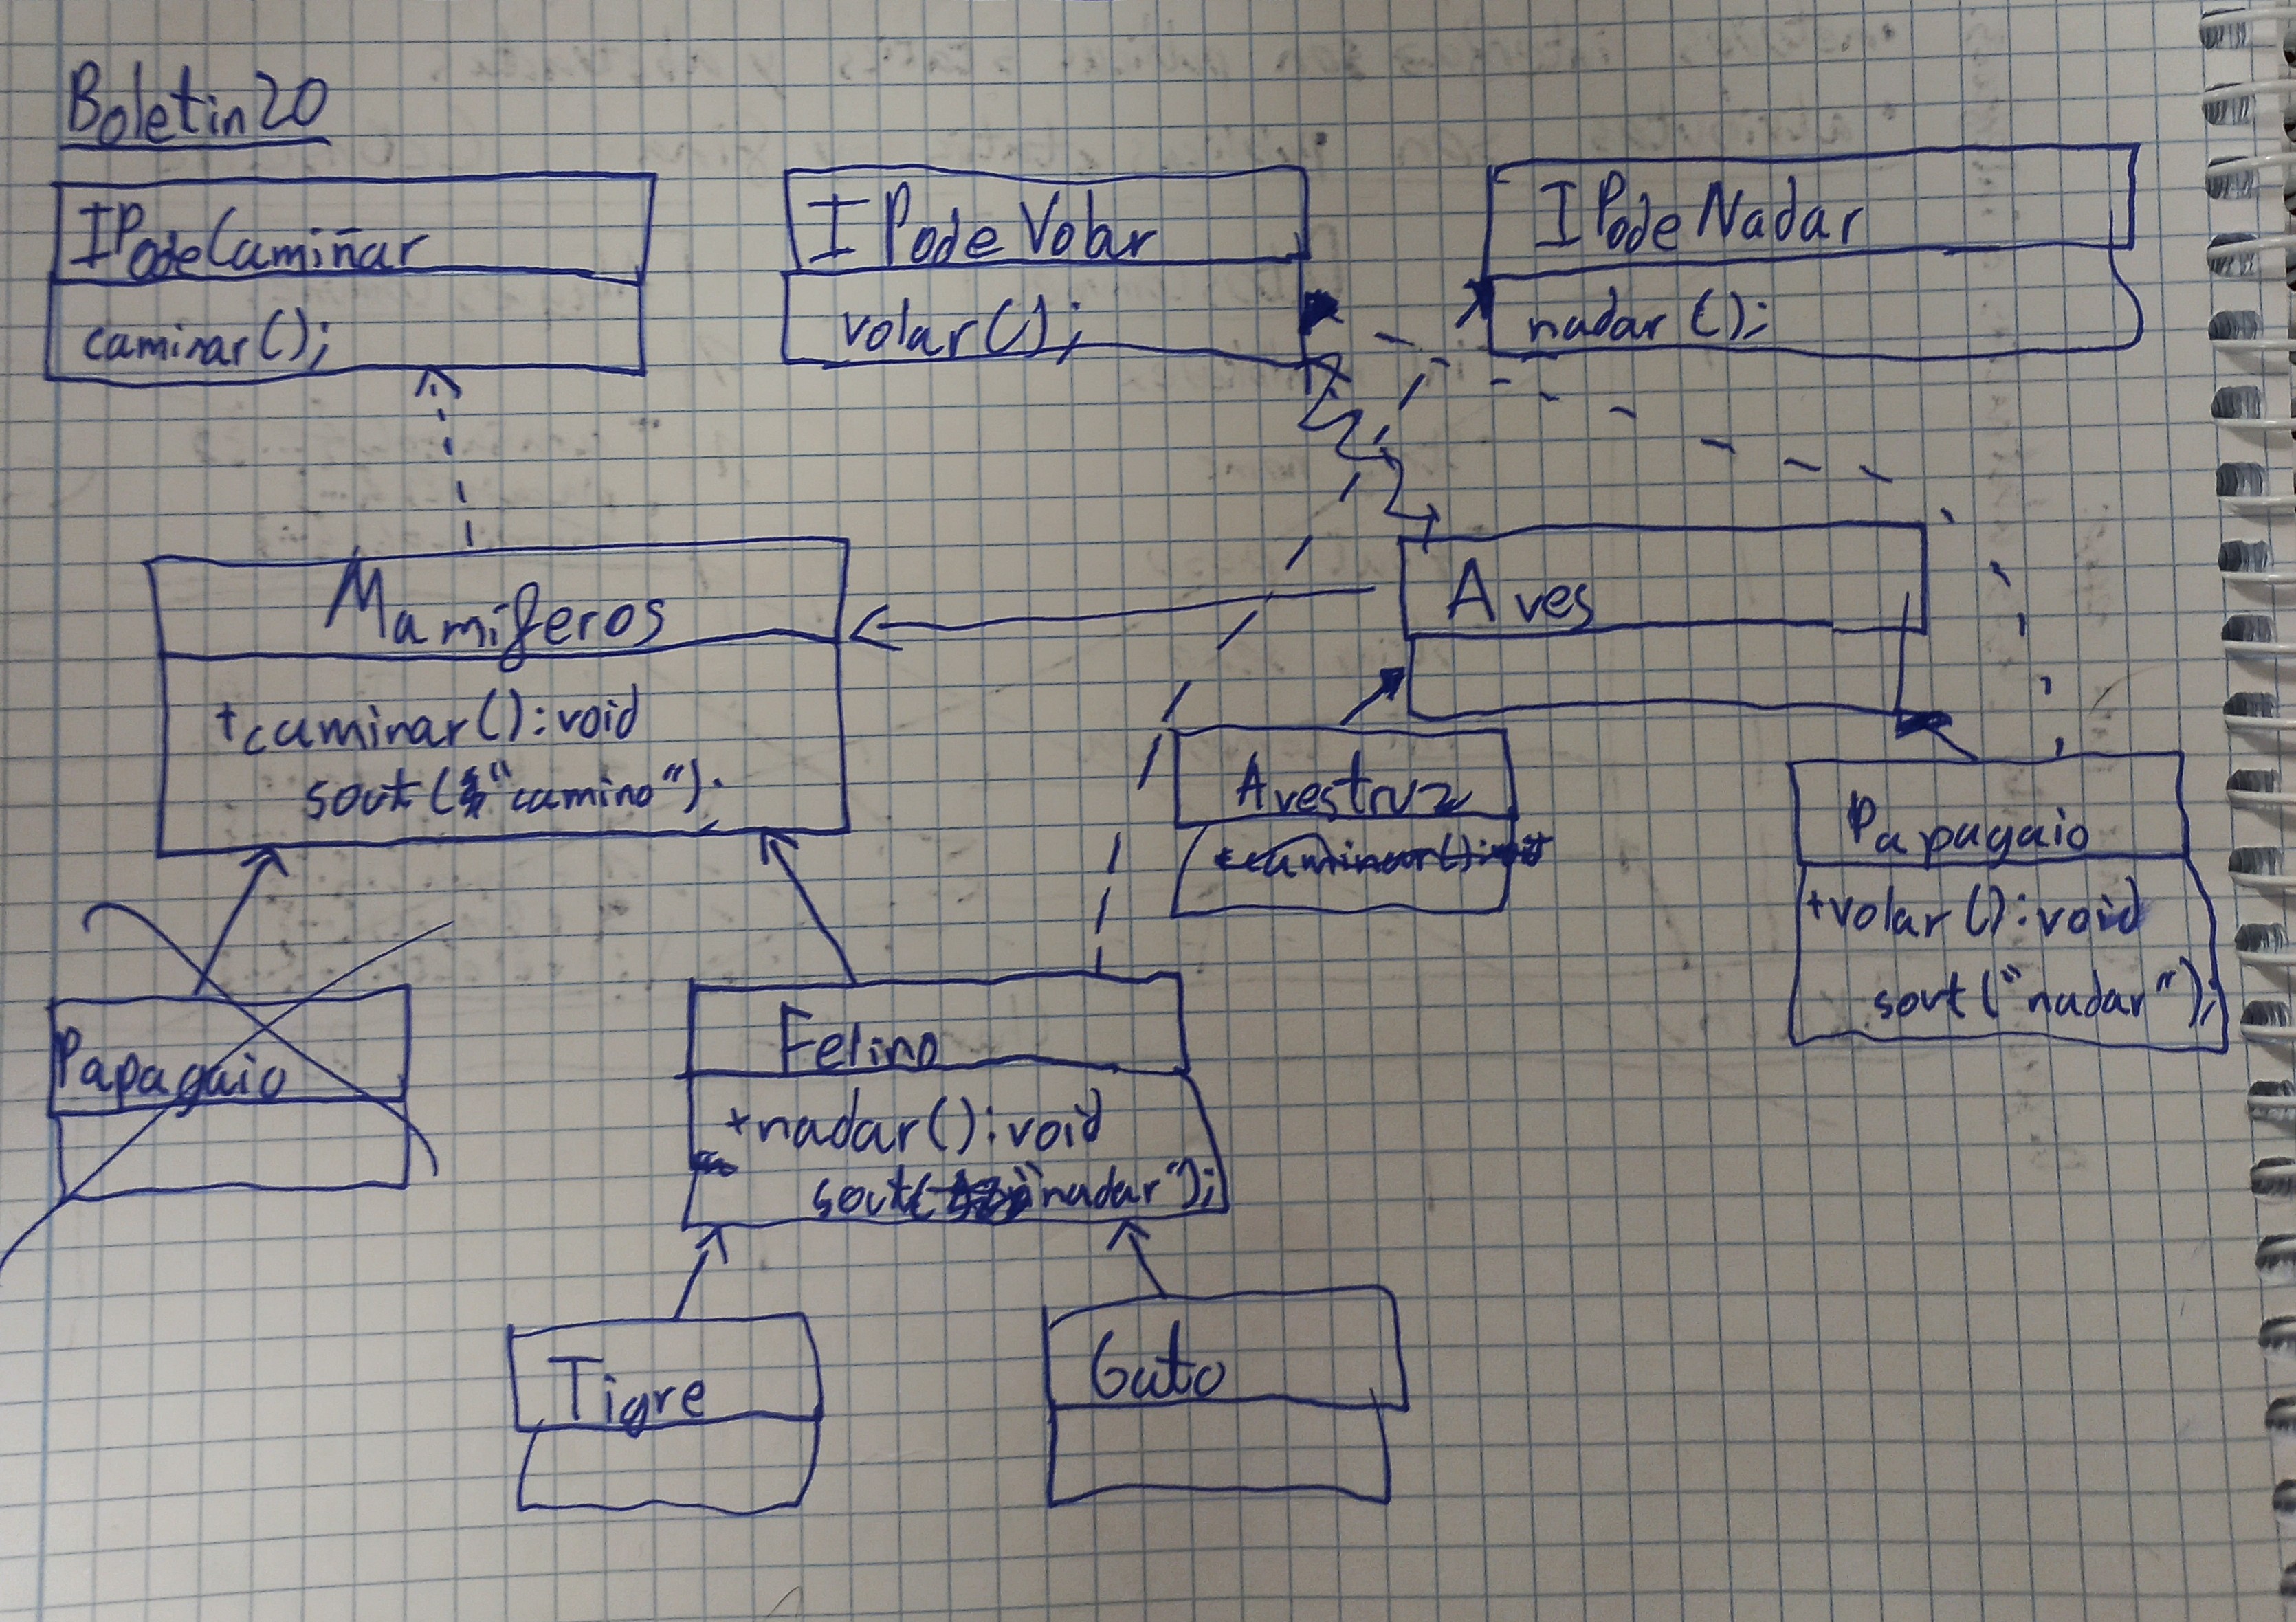 Boletin20
IPodeCamiñar
caminar();
IPodeVolar
volar();
IPodeNadar
nadar();
Mamiferos
+caminar():void
sout("camino");
Aves
Avestruz
+caminar():void
Papagaio
+volar():void
sout("nadar");
Papagaio
Felino
+nadar():void
sout("nadar");
Tigre
Gato